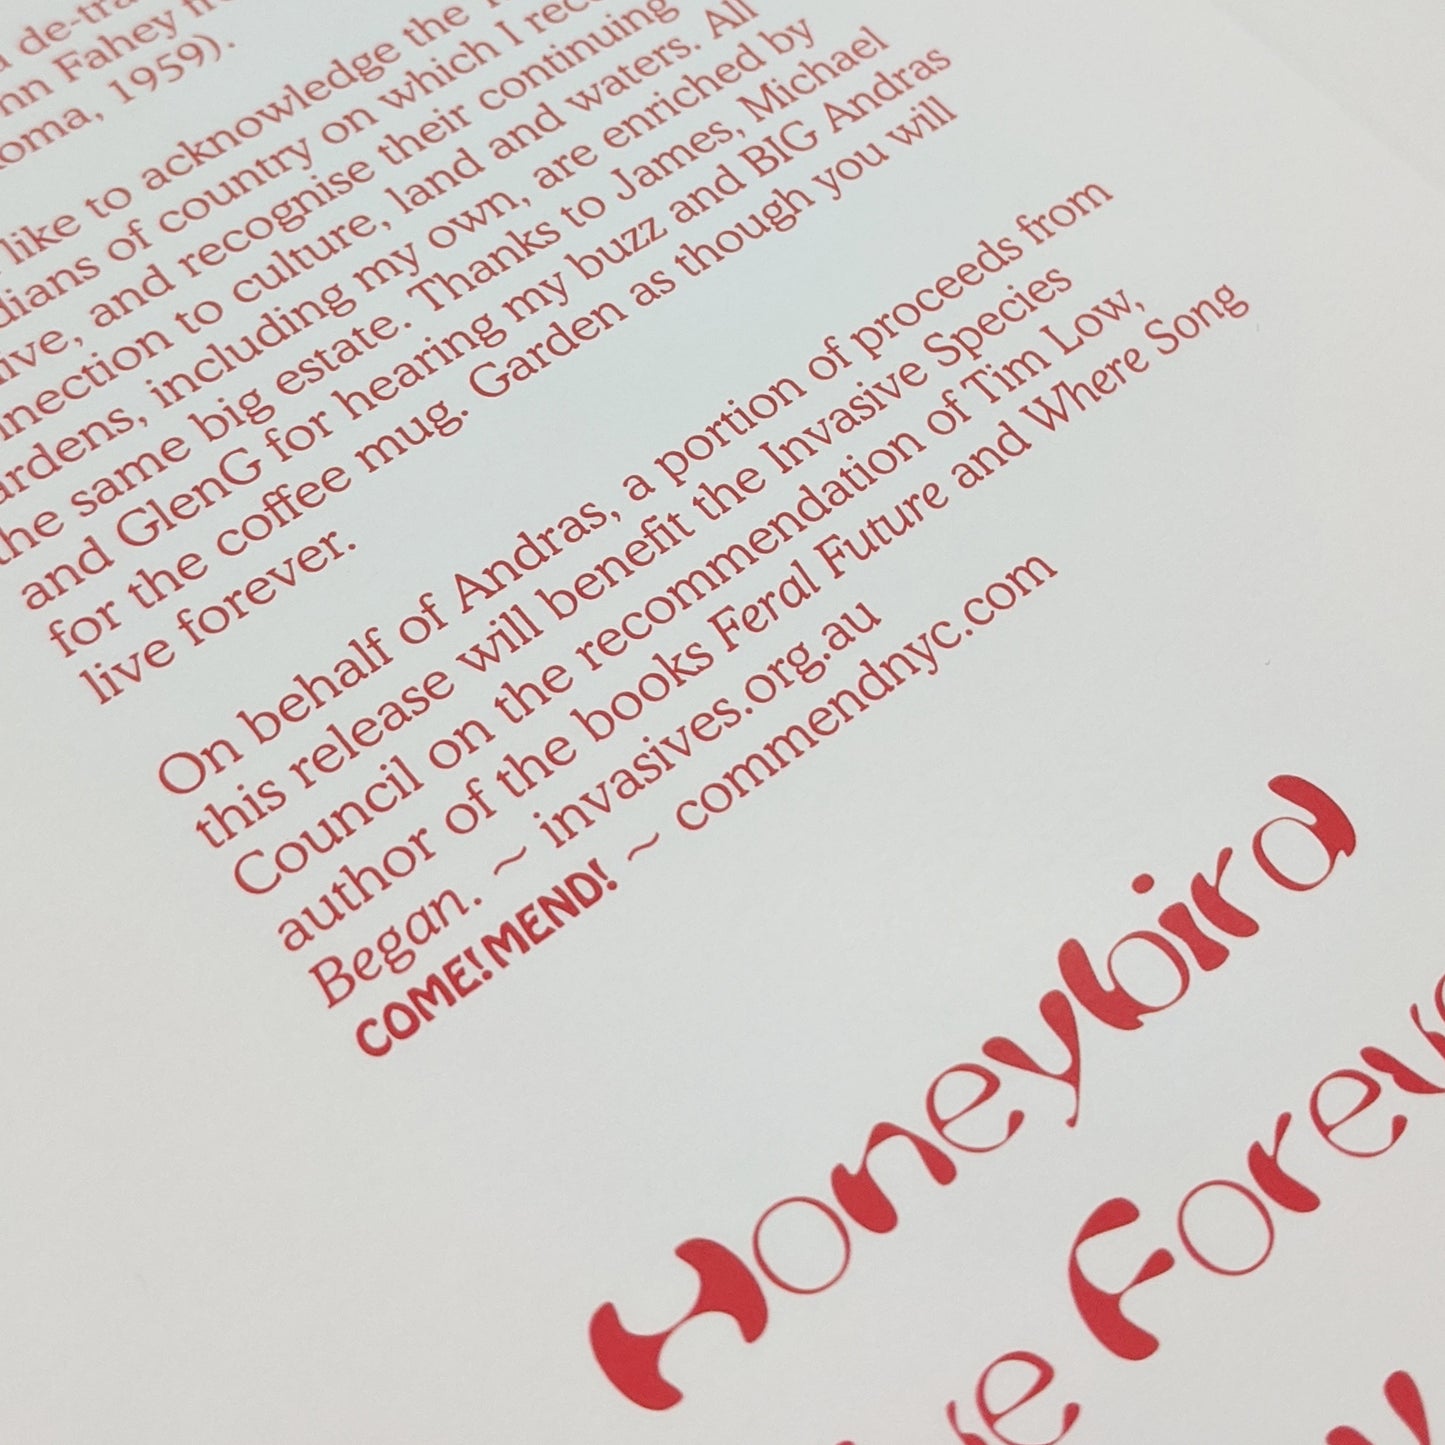 de-tra
nn Fahey fr
oma, 1959).
like to acknowledge the
dians of country on which I rec
ive, and recognise their continuing
nnection to culture, land and waters. All
ardens, including my own, are enriched by
the same big estate. Thanks to James, Michael
and GlenG for hearing my buzz and BIG Andras
for the coffee mug. Garden as though you will
live forever.
On behalf of Andras, a portion of proceeds from
this release will benefit the Invasive Species
Council on the recommendation of Tim Low,
author of the books Feral Future and Where Song
Began. ~ invasives.org.au
COME!MEND! ~ commendnyc.com
Honeybird
ve Foreve